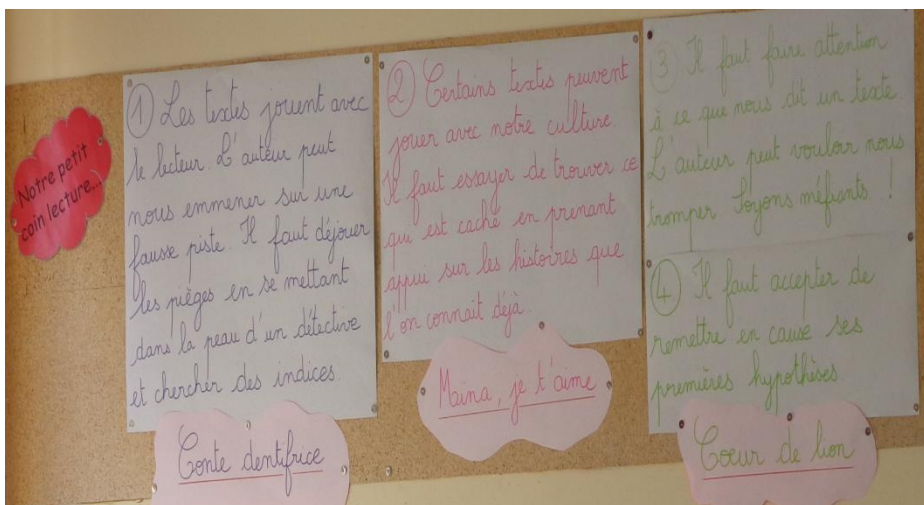 Notre petit
coin lecture...
① Les textes jouent avec
le lecteur. L'auteur peut
nous emmener sur une
fausse piste. Il faut déjouer
les pièges en se mettant
dans la peau d'un détective
et chercher des indices.
Conte dentifrice
② Certains textes peuvent
jouer avec notre culture.
Il faut essayer de trouver ce
qui est caché en prenant
appui sur les histoires que
l'on connait déjà.
Maina, je t'aime
③ Il faut faire attention
à ce que nous dit un texte.
L'auteur peut vouloir nous
tromper. Soyons méfiants !
④ Il faut accepter de
remettre en cause ses
premières hypothèses.
Coeur de lion